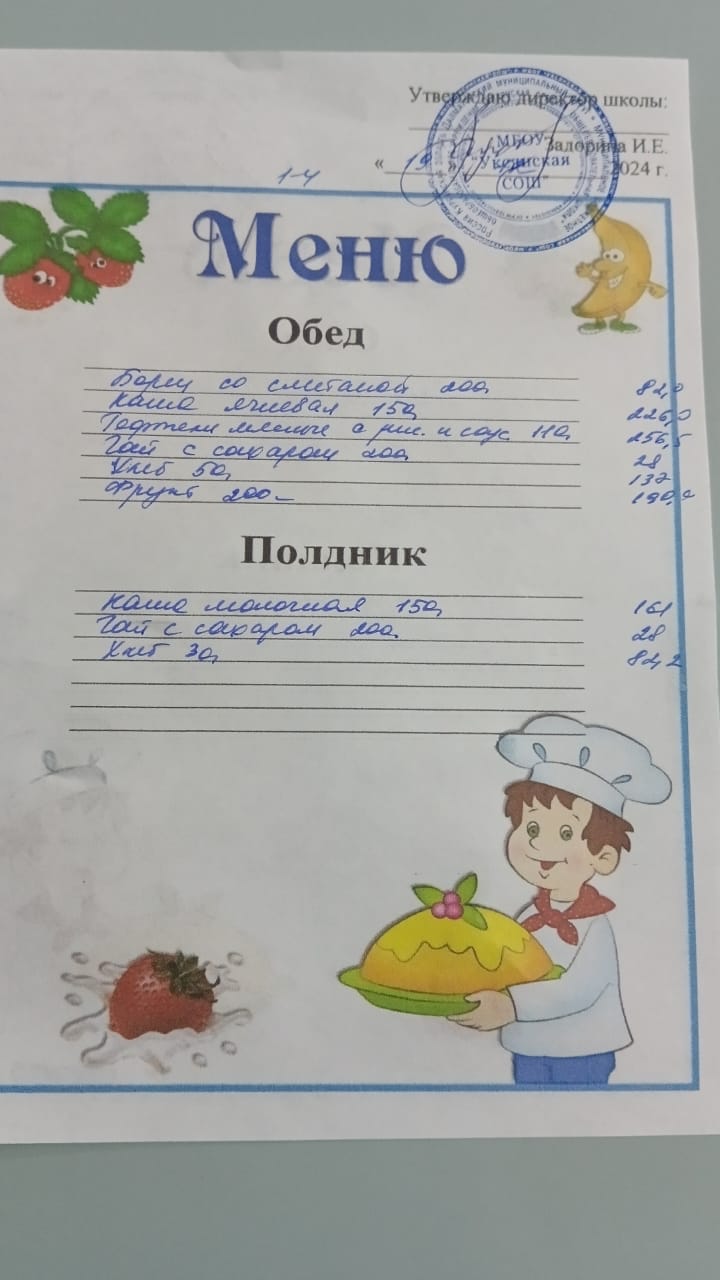 Утверждаю директор школы:
Задорина И.Е.
« 19 » 2024 г.
МБОУ
"Уксянская
СОШ"
1-4
Меню
Обед
Борщ со сметаной 200 82,0
Каша ячневая 150 226,0
Тефтели мясные с рис. и соус 110 256,5
Чай с сахаром 200 28
Хлеб 50 137
Фрукт 200
Полдник
Каша молочная 150 161
Чай с сахаром 200 28
Хлеб 30 84,2